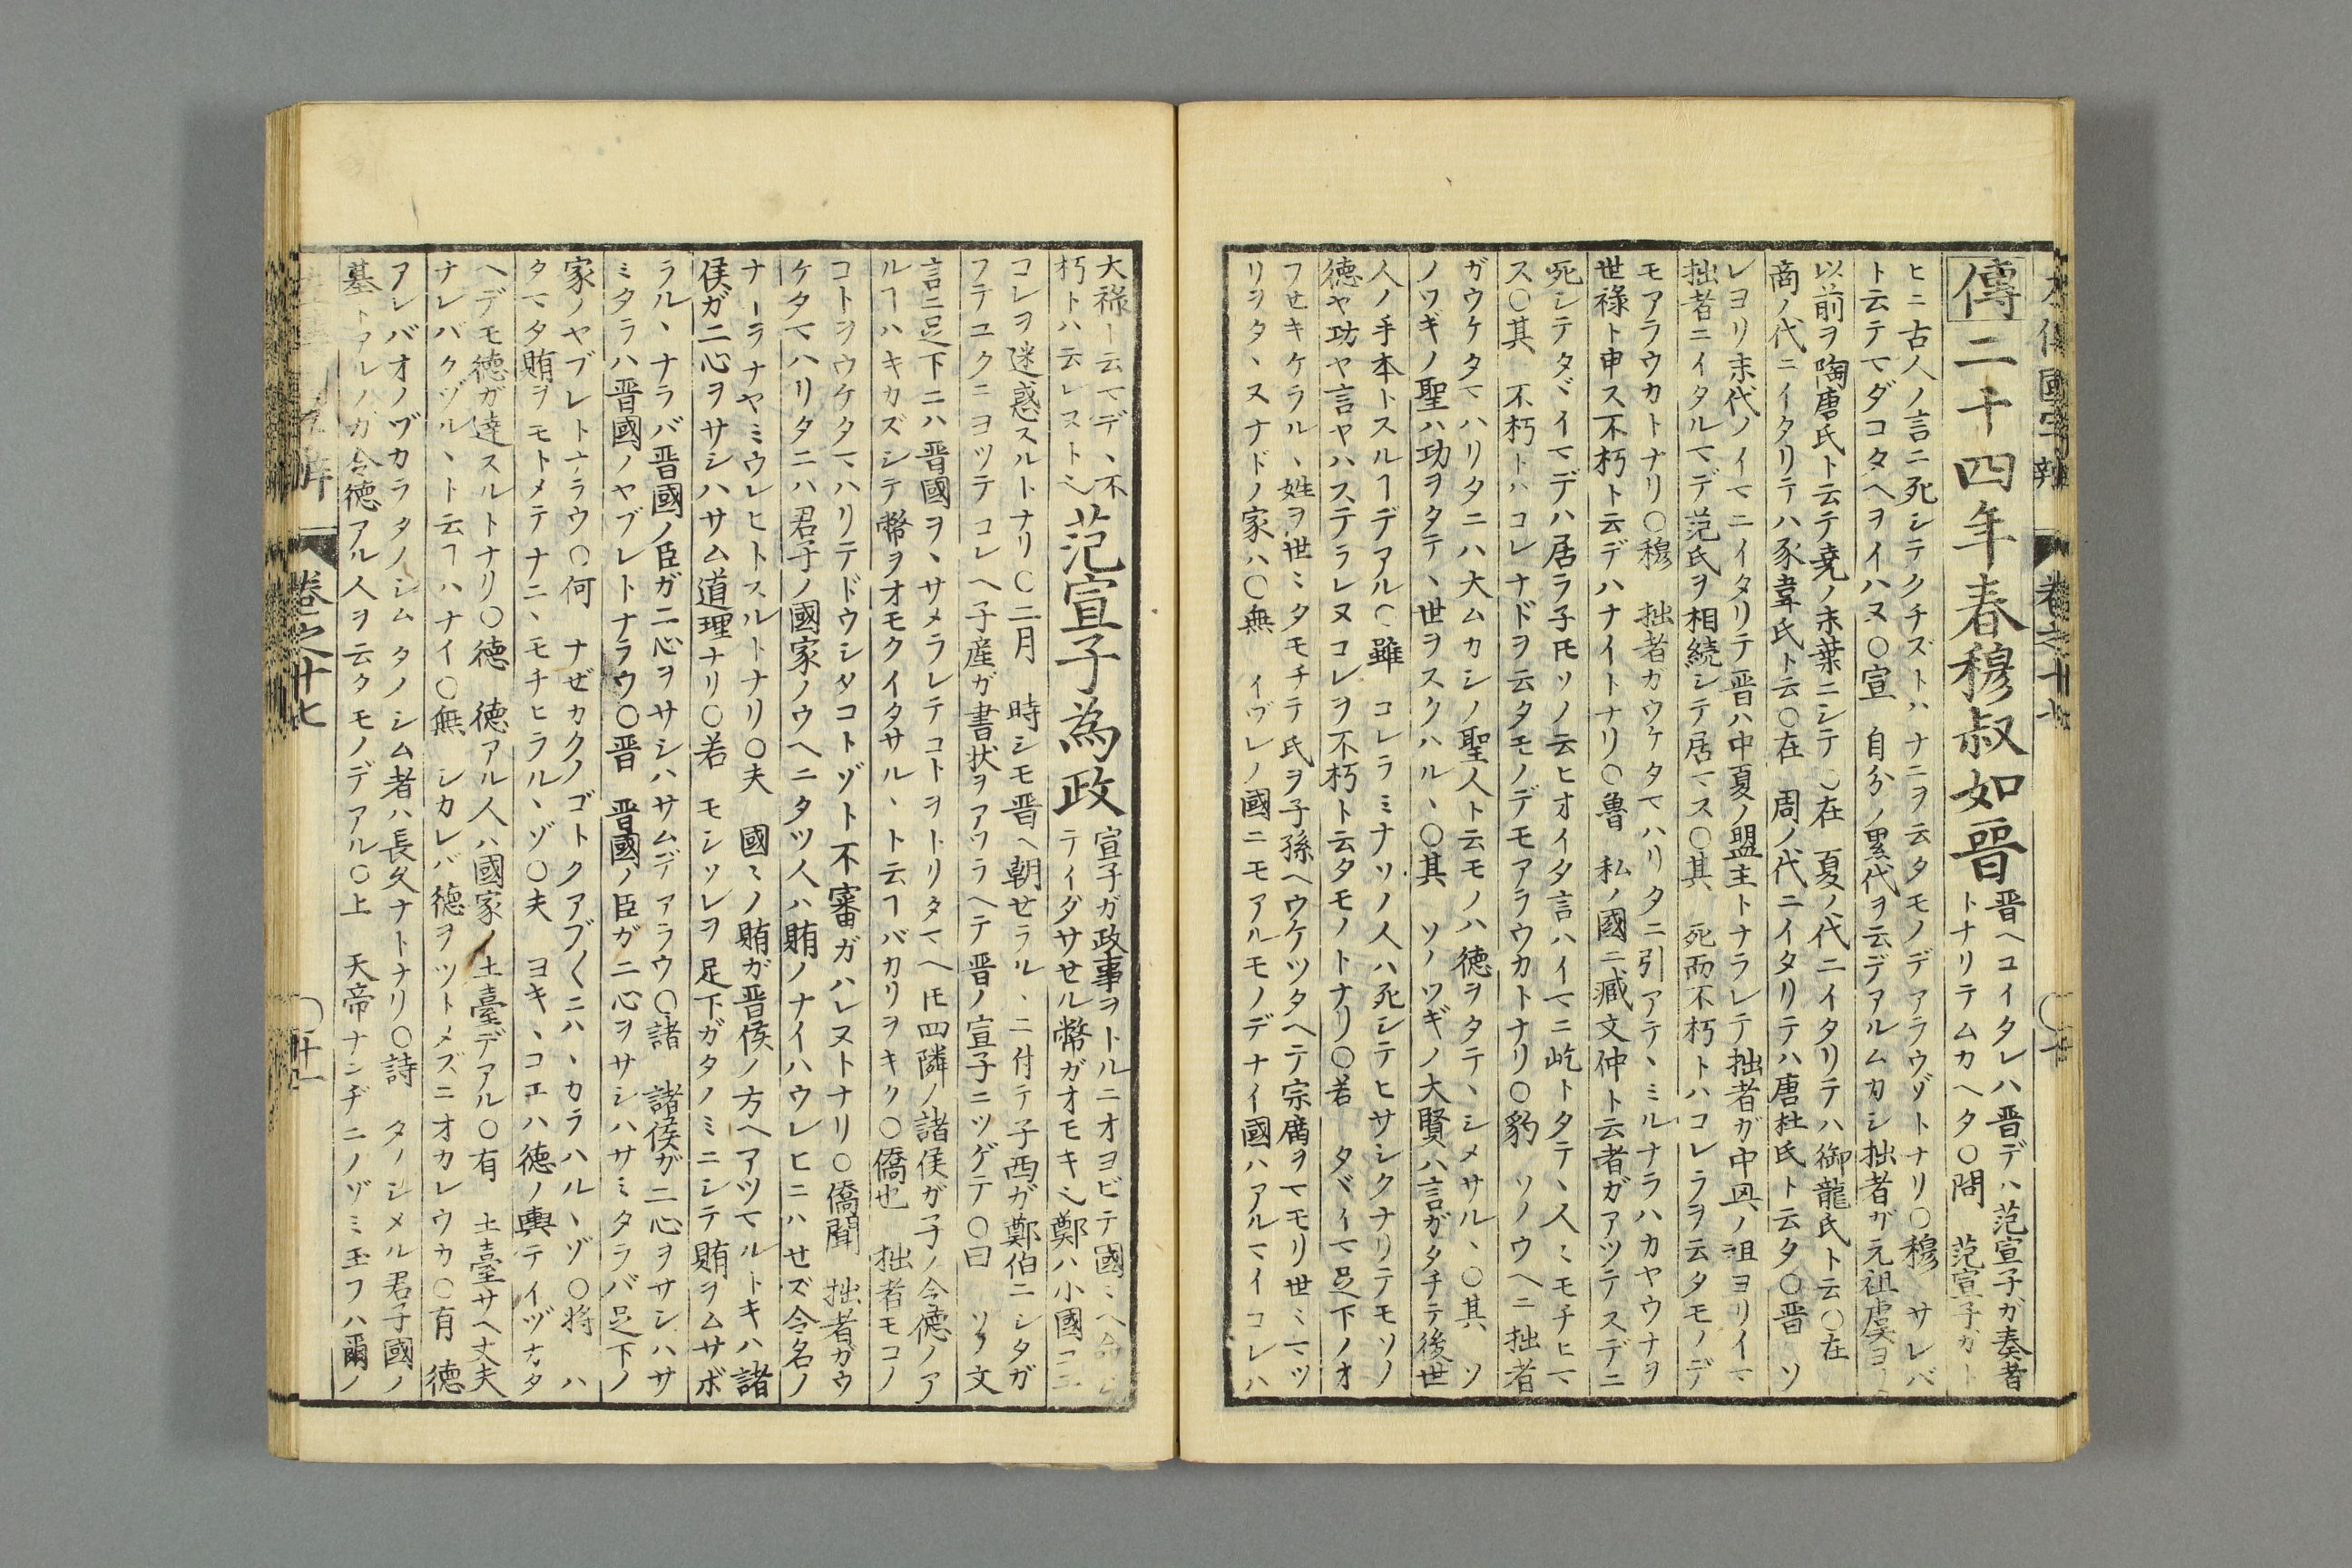 左傳國字辯 卷之十七
傳二十四年春穆叔如晋
晋ヘコイタレハ晋デハ范宣子ガ奏者
トナリテムカヘタ〇問 范宣子ガト
ヒニ古人ノ言ニ死シテクチズトハナニヲ云タモノデアラウゾトナリ〇穆 サレバ
ト云テマダコタヘヲイハヌ〇宣 自分ノ累代ヲ云デアルムカシ拙者ガ元祖虞ヨリ
以前ヲ陶唐氏ト云テ尭ノ末葉ニシテ〇在 夏ノ代ニイタリテハ御龍氏ト云〇在
商ノ代ニイタリテハ豕韋氏ト云〇在 周ノ代ニイタリテハ唐杜氏ト云タ〇晋 ソ
レヨリ末代ノイマニイタリテ晋ハ中夏ノ盟主トナラレテ拙者ガ中興ノ祖ヨリイマ
拙者ニイタルマデ范氏ヲ相続シテ居マス〇其 死而不朽トハコレラヲ云タモノデ
モアラウカトナリ〇穆 拙者ガウケタマハリタニ引アテヽミルナラハカヤウナヲ
世祿ト申ス不朽ト云デハナイトナリ〇魯 私ノ國ニ臧文仲ト云者ガアツテスデニ
死シテタヾイマデハ居ラ子𪜈ソノ云ヒオイタ言ハイマニ屹トタテヽ人ミモチヒマ
ス〇其 不朽トハコレナドヲ云タモノデモアラウカトナリ〇豹 ソノウヘニ拙者
ガウケタマハリタニハ大ムカシノ聖人ト云モノハ徳ヲタテヽシメサルヽ〇其 ソ
ノワギノ聖ハ功ヲタテヽ世ヲスクハルヽ〇其 ソノワギノ大賢ハ言ガタチテ後世
人ノ手本トスルヿデアル〇雖 コレラミナソノ人ハ死シテヒサシクナリテモソノ
徳ヤ功ヤ言ヤハステラレヌコレヲ不朽ト云タモノトナリ〇若 タヾイマ足下ノオ
フせキケラルヽ姓ヲ世ミタモチテ氏ヲ子孫ヘウケツタヘテ宗廟ヲマモリ世ミマツ
リヲタヽヌナドノ家ハ〇無 イヅレノ國ニモアルモノデナイ國ハアルマイコレハ
大祿ト云マデヽ不
朽トハ云レヌト也
范宣子為政
宣子ガ政事ヲトルニオヨビテ國ミヘ
テイダサせル幣ガオモキ也鄭ハ小國
コレヲ迷惑スルトナリ〇二月 時シモ晋ヘ朝せラルヽニ付テ子西ガ鄭伯ニシタガ
フテユクニヨツテコレヘ子産ガ書状ヲアツラヘテ晋ノ宣子ニツゲテ〇曰 ソノ文
言ニ足下ニハ晋國ヲヽサメラレテコトヲトリタマヘ𪜈四隣ノ諸侯ガ子ノ令徳ノア
ルヿハキカズシテ幣ヲオモクイタサルヽト云ヿバカリヲキク〇僑也 拙者モコノ
コトヲウケタマハリテドウシタコトゾト不審ガハレヌトナリ〇僑聞 拙者ガウ
ケタマハリタニハ君子ノ國家ノウヘニタツ人ハ賄ノナイハウレヒニハせズ令名ノ
ナーラナヤミウレヒトスルトナリ〇夫 國ミノ賄ガ晋侯ノ方ヘアツマルトキハ諸
侯ガ二心ヲサシハサム道理ナリ〇若 モシソレヲ足下ガタノミニシテ賄ヲムサボ
ラルヽナラバ晋國ノ臣ガ二心ヲサシハサムデアラウ〇諸 諸侯ガ二心ヲサシハサ
ミタラハ晋國ノヤブレトナラウ〇晋 晋國ノ臣ガ二心ヲサシハサミタラバ足下ノ
家ノヤブレトナラウ〇何 ナぜカクノゴトクアブ〱ニハヽカラハルヽゾ〇将 ハ
タマタ賄ヲモトメテナニヽモチヒラルヽゾ〇夫 ヨキヽコエハ徳ノ輿テイヅカタ
ヘデモ徳ガ達スルトナリ〇徳 徳アル人ハ國家ノ土臺デアル〇有 土臺サヘ丈夫
ナレバクヅルヽト云ヿハナイ〇無 シカレバ徳ヲツトメズニオカレウカ〇有 徳
アレバオノヅカラタノシム タノシム者ハ長久ナトナリ〇詩 タノシメル君子國ノ
墓トアルノカ令徳アル人ヲ云タモノデアル〇上 天帝ナンヂニノゾミ玉フハ爾ノ
卷之十七